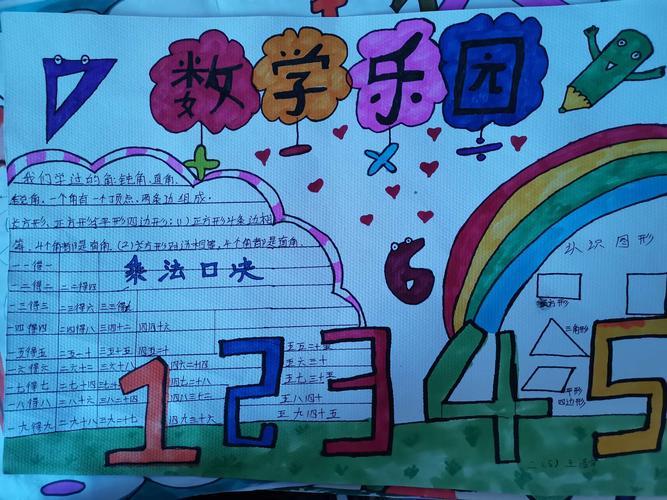 数学乐园
+ − × ÷
我们学过的角:钝角、直角、
锐角.一个角有一个顶点,两条边组成.
等,4个角都是直角.(2)长方形对边相等,4个角都是直角.
乘法口决
一一得一
一二得二 二二得四
一三得三 二三得六 三三得
一四得四 二四得八 三四十二 四四十六
一五得五 二五一十 三五十五 四五二十 五五二十五
一六得六 二六十二 三六十八 四六二十四 五六三十
一七得七 二七十四 三七二 四七二十八 五七三十五
一八得八 二八十六 三八二十四 五八四十
一九得九 二九十八 三九二十七 四九三十六 五九四十五
6
认识图形
方形
三角形
平行
四边形
1 2 3 4 5
二(5) 王